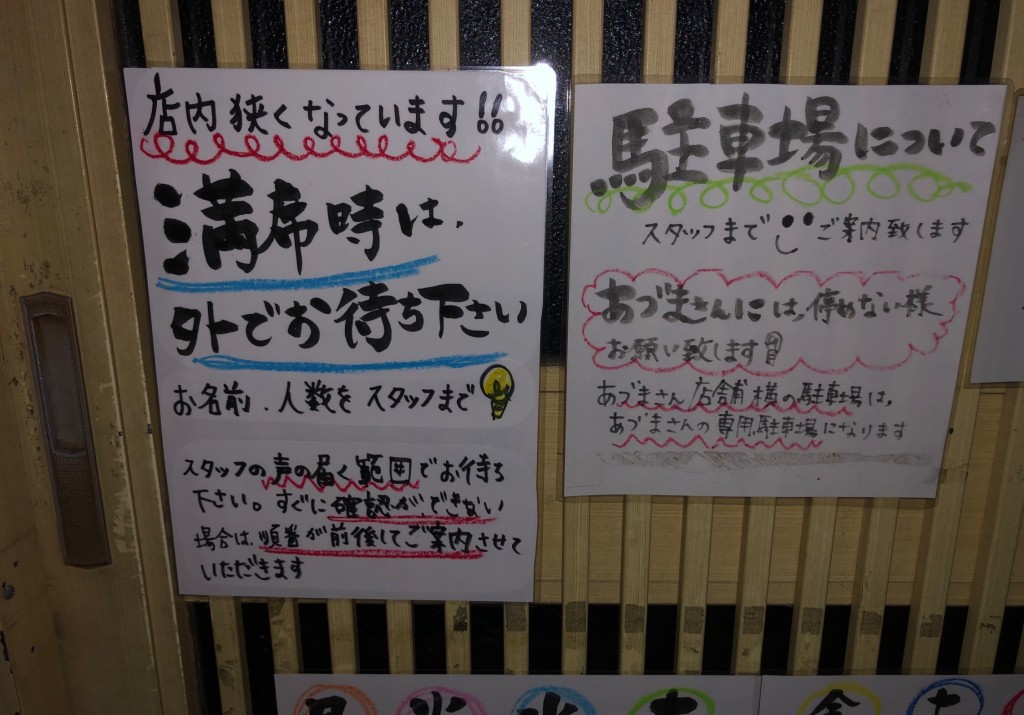 店内狭くなっています!!
満席時は、
外でお待ち下さい
お名前、人数をスタッフまで
スタッフの声の届く範囲でお待ち
下さい。すぐに確認ができない
場合は、順番が前後してご案内させて
いただきます
駐車場について
スタッフまで ご案内致します
あづまさんには、停めない様
お願い致します
あづまさん店舗横の駐車場は、
あづまさんの専用駐車場になります